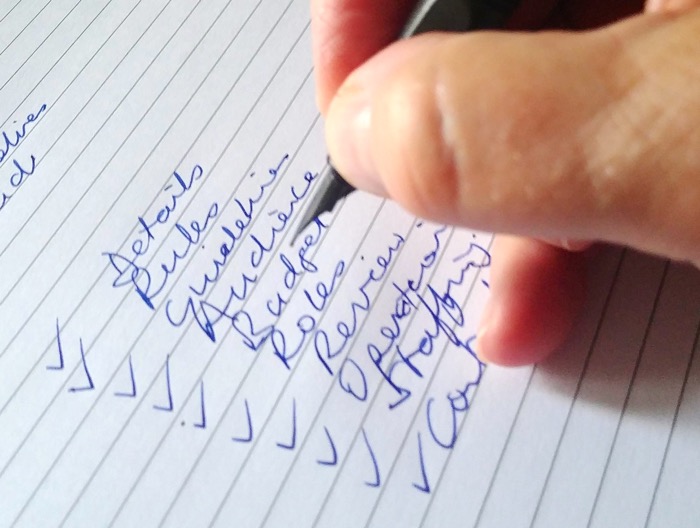 Details
Rules
Guidelines
Audience
Budget
Roles
Review
Operation
Staffing